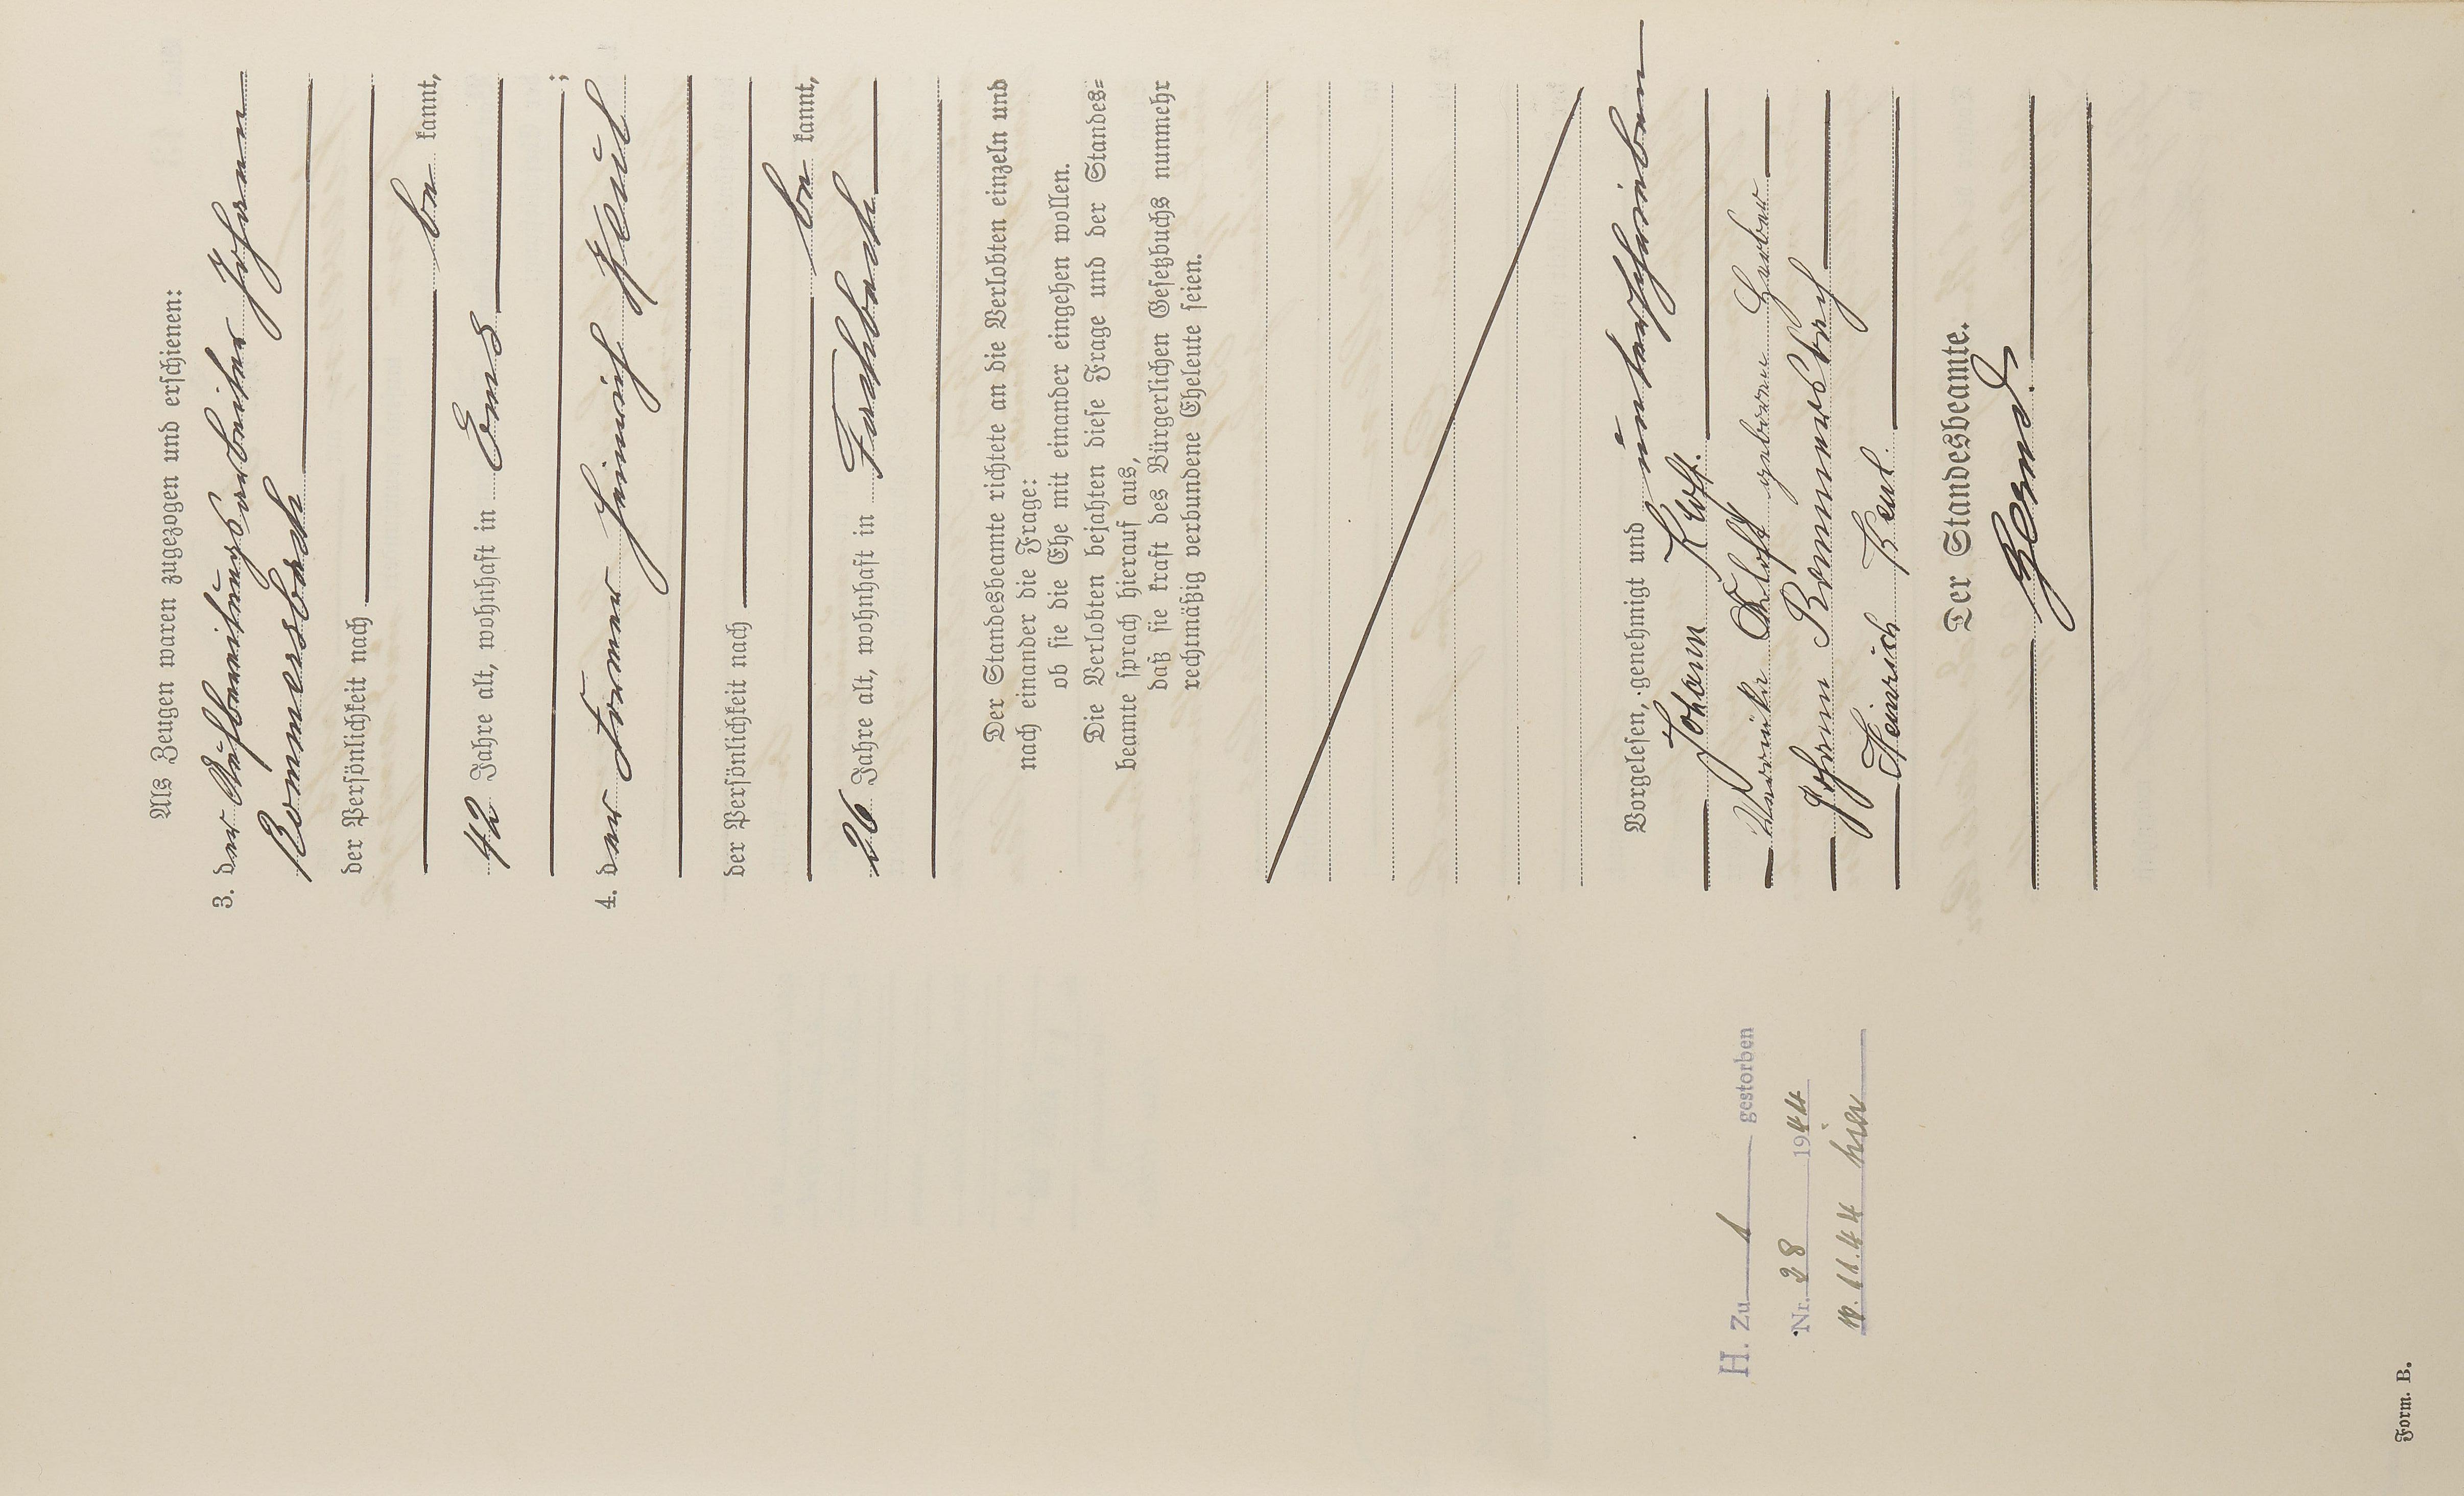 Als Zeugen waren zugezogen und erschienen:
3. der Aufbereitungsarbeiter Johann
Rommersbach
der Persönlichkeit nach
be kannt,
42 Jahre alt, wohnhaft in Ems
;
4. der Former Heinrich Keul
der Persönlichkeit nach
be kannt,
26 Jahre alt, wohnhaft in Fachbach
Der Standesbeamte richtete an die Verlobten einzeln und
nach einander die Frage:
ob sie die Ehe mit einander eingehen wollen.
Die Verlobten bejahten diese Frage und der Standes=
beamte sprach hierauf aus,
daß sie kraft des Bürgerlichen Gesetzbuchs nunmehr
rechtmäßig verbundene Eheleute seien.
Vorgelesen, genehmigt und unterschrieben
Johann
geborene
Johann Rommersbach
Heinrich Keul.
Der Standesbeamte.
H. Zu 1 gestorben
Nr. 28 1944
11.44 hier
Form. B.